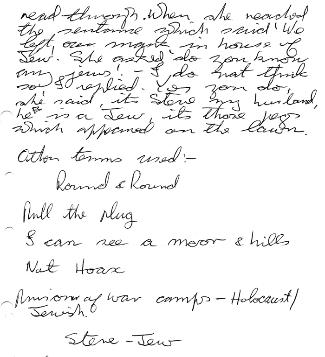 read through. When she reached
the sentence which said 'We
left our mark in house of
Jew. She asked do you know
any jews! - I do not think
so, I replied. Yes you do,
she said, its Steve my husband,
he is a Jew, its those pegs
which appeared on the lawn.
Other terms used:-
Round & Round
Pull the plug
I can see a moor & hills
Nut Hoax
Prisoner of war camps - Holocaust/
Jewish.
Steve - Jew